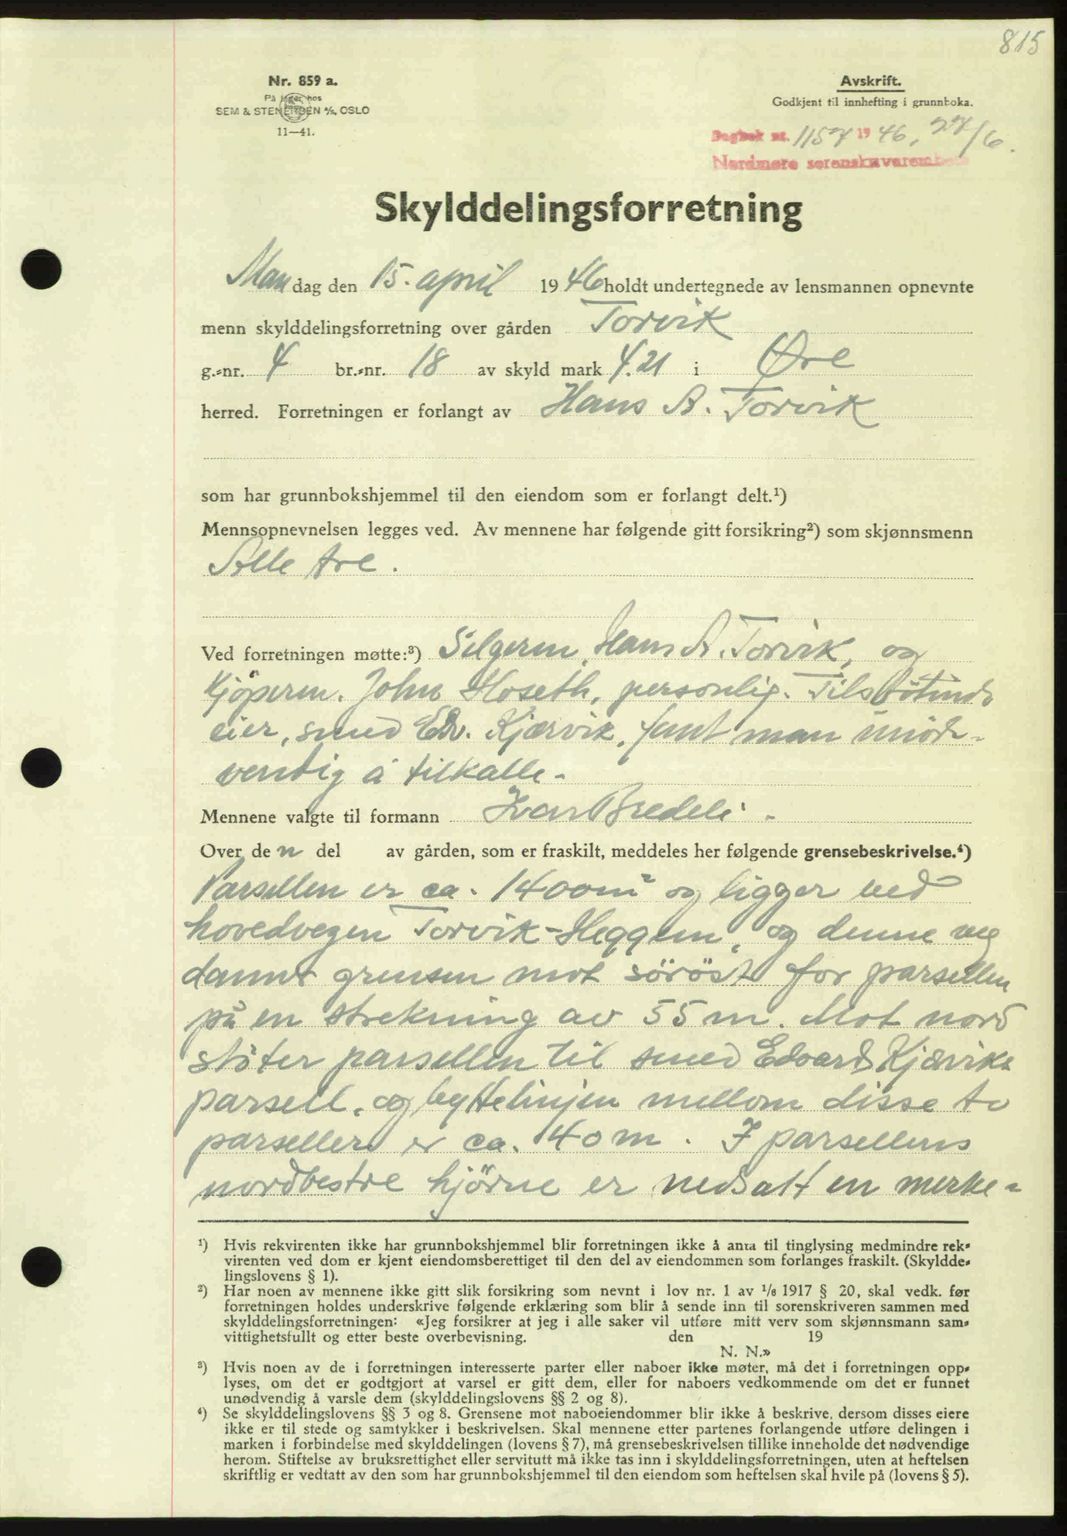 815
Nr. 859 a.
På lager hos
SEM & STENERSEN A/S, OSLO
11—41.
Avskrift.
Godkjent til innhefting i grunnboka.
Dagbok nr. 1157 1946, 27/6.
Nordmøre sorenskriverembete
Skylddelingsforretning
Mandag den 15. april 1946 holdt undertegnede av lensmannen opnevnte
menn skylddelingsforretning over gården Torvik
g.-nr. 4 br.-nr. 18 av skyld mark 4.21 i Øre
herred. Forretningen er forlangt av Hans A. Torvik
som har grunnbokshjemmel til den eiendom som er forlangt delt.¹)
Mennsopnevnelsen legges ved. Av mennene har følgende gitt forsikring²) som skjønnsmenn
Alle tre.
Ved forretningen møtte:³) Selgeren, Hans A. Torvik, og
Kjöperen. John Hoseth, personlig. Tilstötende
eier, smed Edv. Kjærvik, fant man unöd-
vendig å tilkalle-
Mennene valgte til formann Ivar Bredeli -
Over den del av gården, som er fraskilt, meddeles her følgende grensebeskrivelse.⁴)
Parsellen er ca. 1400m² og ligger ved
hovedvegen Torvik-Heggem, og denne veg
danner grensen mot söröst for parsellen
på en strekning av 55 m. Mot nord
stöter parsellen til smed Edvard Kjærviks
parsell, og byttelinjen mellom disse to
parseller er ca. 40 m. I parsellens
nordvestre hjörne er nedsatt en merke-
¹) Hvis rekvirenten ikke har grunnbokshjemmel blir forretningen ikke å anta til tinglysing medmindre rek-
virenten ved dom er kjent eiendomsberettiget til den del av eiendommen som forlanges fraskilt. (Skyldde-
lingslovens § 1).
²) Har noen av mennene ikke gitt slik forsikring som nevnt i lov nr. 1 av 1/6 1917 § 20, skal vedk. før
forretningen holdes underskrive følgende erklæring som blir å sende inn til sorenskriveren sammen med
skylddelingsforretningen: «Jeg forsikrer at jeg i alle saker vil utføre mitt verv som skjønnsmann sam-
vittighetsfullt og etter beste overbevisning. den 19
N. N.»
³) Hvis noen av de i forretningen interesserte parter eller naboer ikke møter, må det i forretningen opp-
lyses, om det er godtgjort at varsel er gitt dem, eller for naboers vedkommende om det er funnet
unødvendig å varsle dem (skylddelingslovens §§ 2 og 8).
⁴) Se skylddelingslovens §§ 3 og 8. Grensene mot naboeiendommer blir ikke å beskrive, dersom disses eiere
ikke er til stede og samtykker i beskrivelsen. Skal mennene etter partenes forlangende utføre delingen i
marken i forbindelse med skylddelingen (lovens § 7), må grensebeskrivelsen tillike inneholde det nødvendige
herom. Stiftelse av bruksrettighet eller servitutt må ikke tas inn i skylddelingsforretningen, uten at heftelsen
skriftlig er vedtatt av den som har grunnbokshjemmel til den eiendom som heftelsen skal hvile på (lovens § 5).